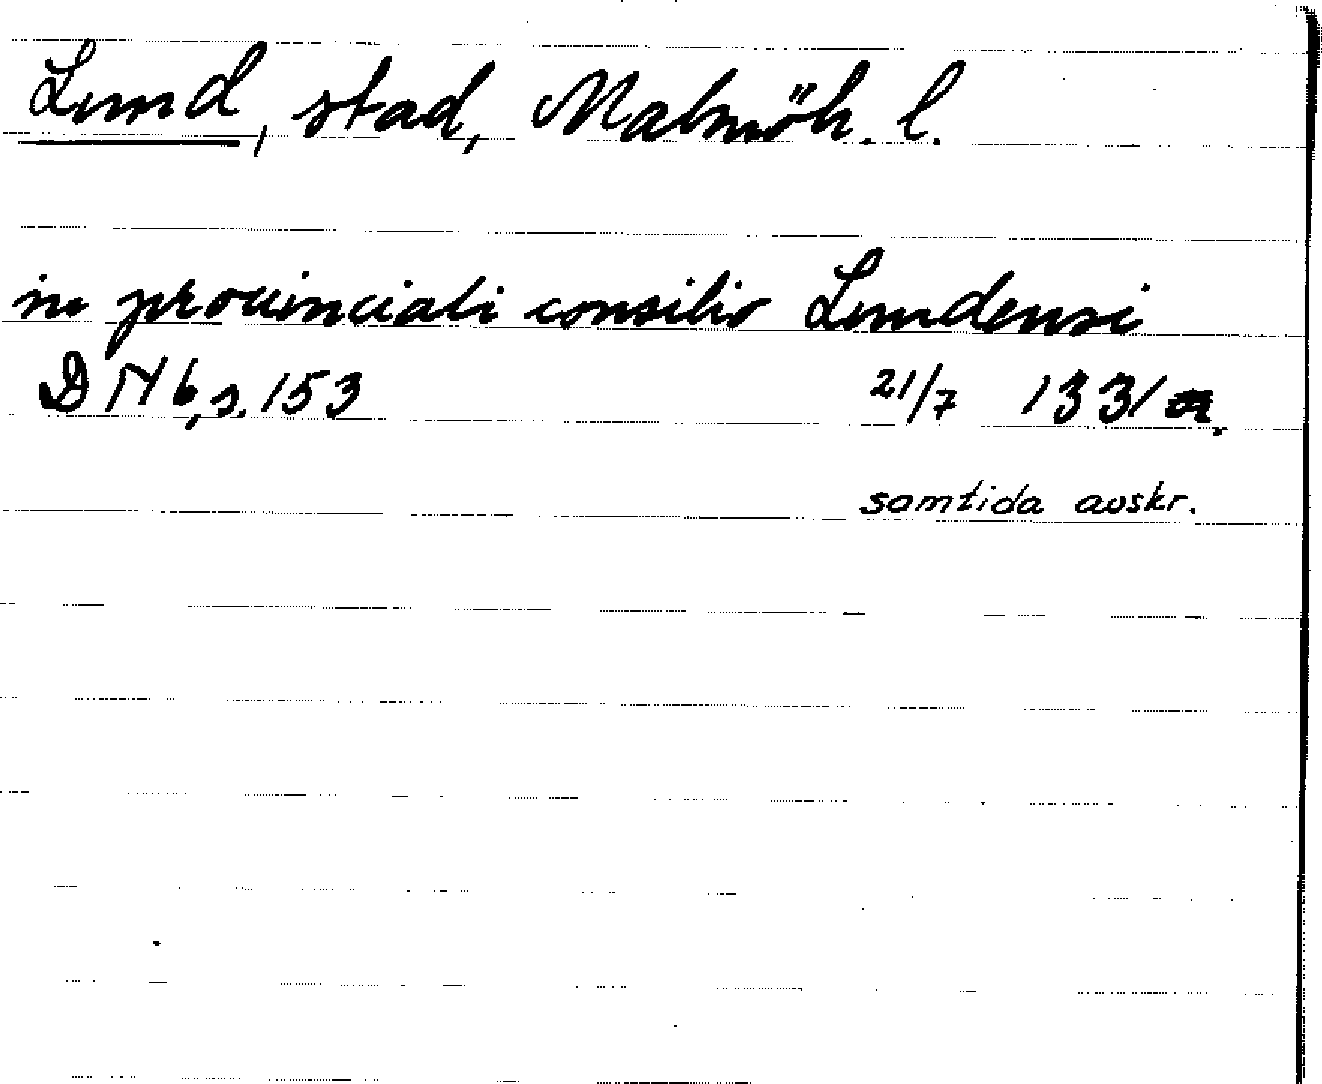 Lund, stad, Malmöh. l.
in prouinciali consilio Lundensi
DN 6, s. 153 21/7 1331
samtida avskr.